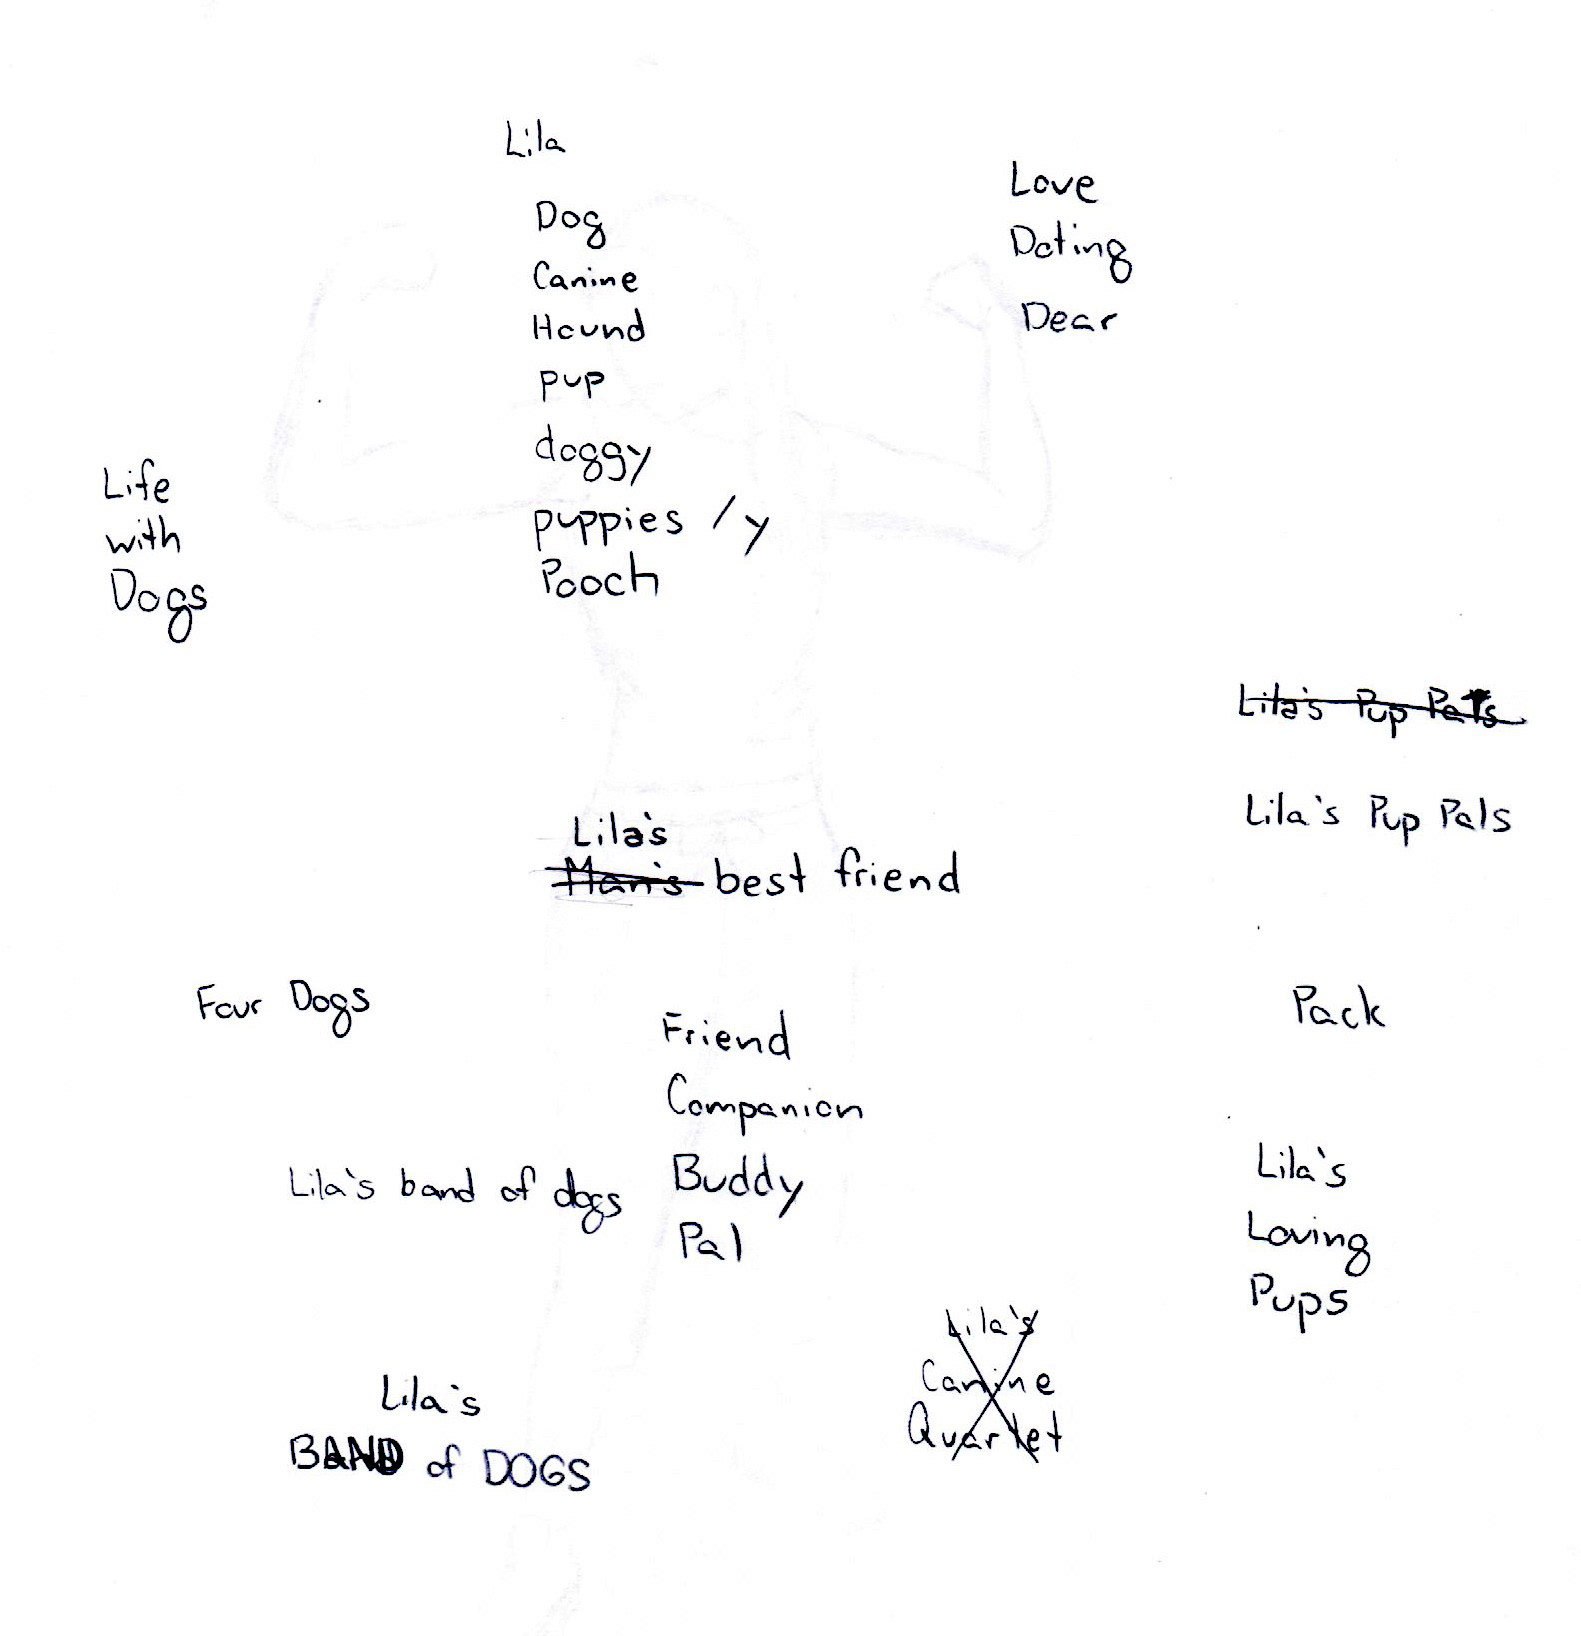 Lila
Dog
Canine
Hound
pup
doggy
puppies / y
Pooch
Love
Doting
Dear
Life
with
Dogs
Lila's Pup Pals
Lila's Pup Pals
Lila's
Man's best friend
Four Dogs
Friend
Companion
Buddy
Pal
Pack
Lila's band of dogs
Lila's
Loving
Pups
Lila's
Canine
Quartet
Lila's
BAND of DOGS